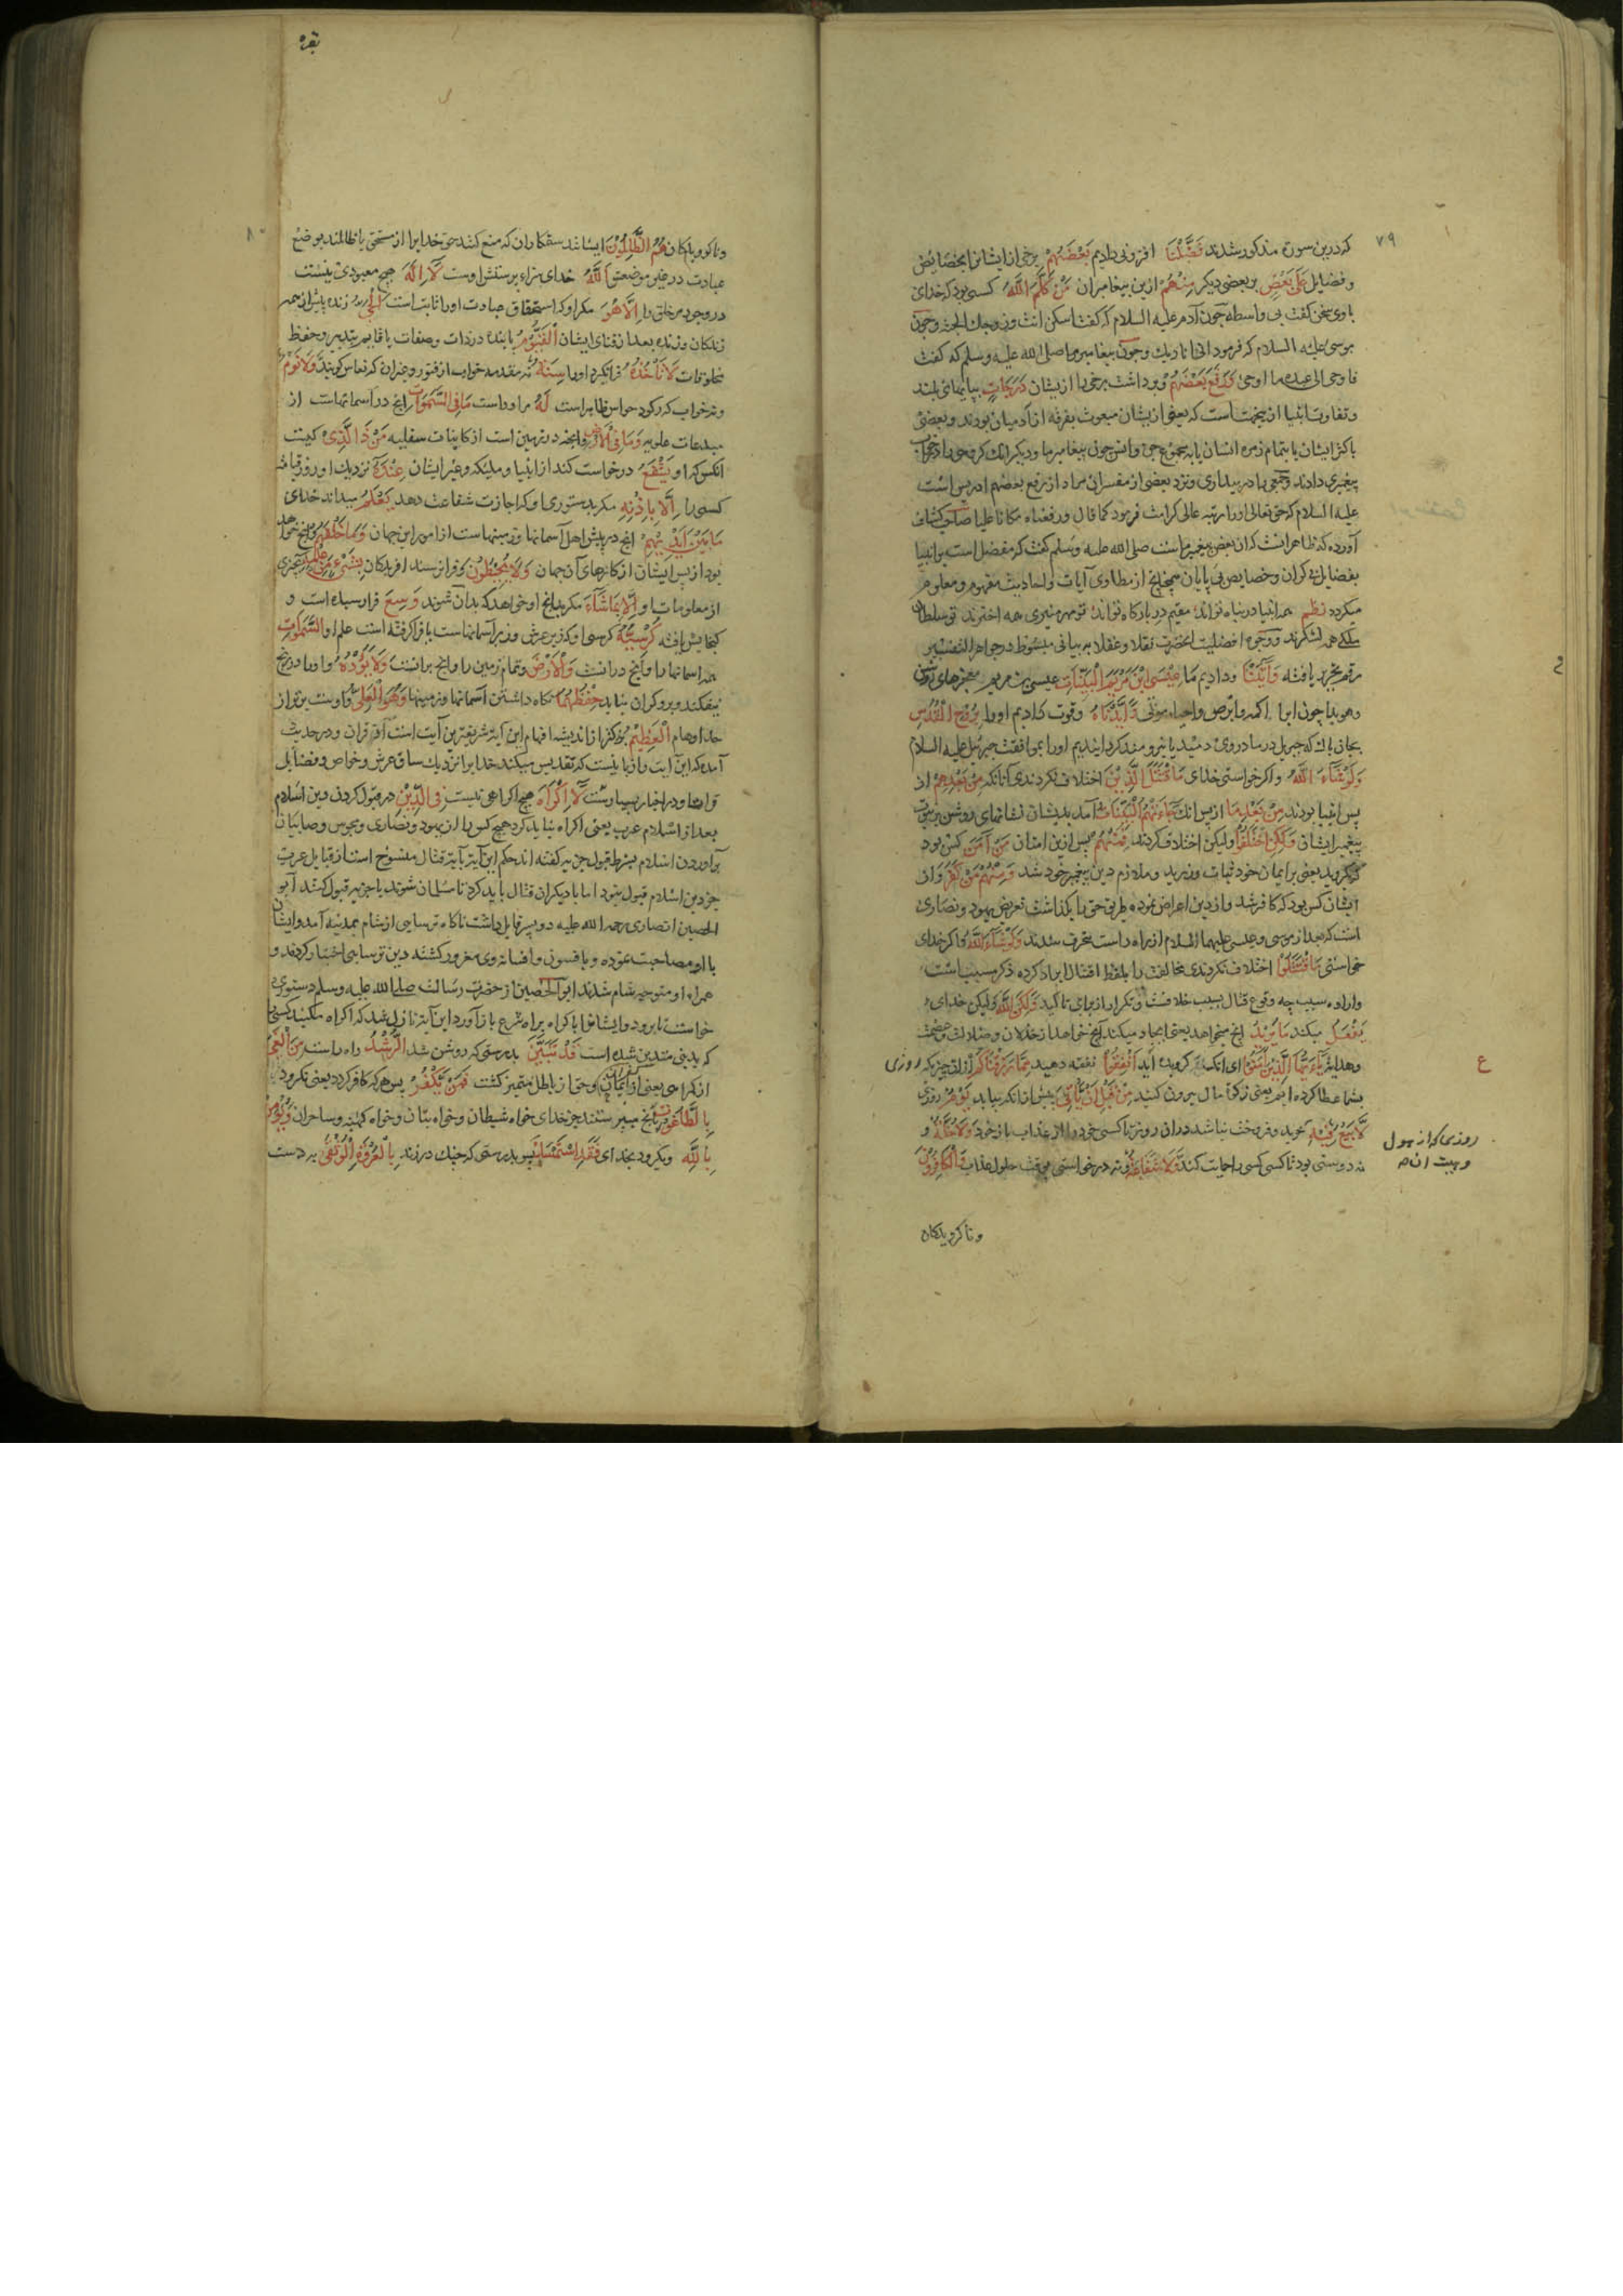 ٧٩
که درین سورة مذکور شدند فَضَّلْنَا افزونی دادیم بَعْضَهُمْ برخی از ایشانرا بخصائص
و فضایل عَلَى بَعْضٍ بر بعضی دیگر مِنْهُمْ ازین پیغامبران مَنْ كَلَّمَ اللَّهُ کسی بود که خدای
با وی سخن کفت بی واسطه چون آدم علیه السلام که کفت اسکن انت و زوجک الجنة و چون
موسی علیه السلام که فرمود انی انا ربک و چون پیغامبر ما صلی الله علیه وسلم که کفت
فاوحی الی عبده ما اوحی وَرَفَعَ بَعْضَهُمْ و برداشت برخی را ازیشان دَرَجَاتٍ بپایهای بلند
و تفاوت انبیا ازین جهت است که بعضی ازیشان مبعوث بفرقه از آدمیان بودند و بعضی
باکثر ایشان یا بتمام زمره انسان یا بمجموع جن و انس چون پیغامبر ما و دیکر انک کروهی را در خواب
پیغمبری دادند و جمعی را در بیداری و نزد بعضی از مفسران مراد از رفع بعضهم ادریس است
علیه السلام که حق تعالی اورا مرتبه عالی کرامت فرمود کما قال ورفعناه مکانا علیا صاحب کشاف
آورده که ظاهر انست که ان بعض پیغمبر ماست صلی الله علیه وسلم که مفضل است بر انبیا
بفضایل بی کران و خصایص بی پایان چنانچه از مطاوی آیات و احادیث مفهوم و معلوم
میکردد نظم همه انبیا در پناه تواند مقیم در بارکاه تواند تو مهر منیری همه اخترند تو سلطان
ملکی همه لشکرند و وجوه افضلیت انحضرت نقلا و عقلا به بیانی مبسوط در جواهر التفسیر
رقم تحریر یافته وَآتَيْنَا و دادیم ما عِيسَى ابْنَ مَرْيَمَ الْبَيِّنَاتِ عیسی بن مریم معجزهای روشن
و هویدا چون ابرا اکمه و ابرص و احیاء موتی وَأَيَّدْنَاهُ و قوت دادیم اورا بِرُوحِ الْقُدُسِ
بجان پاک که جبریل در مادر وی دمید یا نیرومند کردانیدیم اورا بموافقت جبرئیل علیه السلام
وَلَوْ شَاءَ اللَّهُ و اکر خواستی خدای مَا اقْتَتَلَ الَّذِينَ اختلاف نکردندی آنانکه مِنْ بَعْدِهِمْ از
پس انبیا بودند مِنْ بَعْدِ مَا از پس انک جَاءَتْهُمُ الْبَيِّنَاتُ آمد بدیشان نشانهای روشن بر نبوت
پیغمبر ایشان وَلَكِنِ اخْتَلَفُوا ولیکن اختلاف کردند فَمِنْهُمْ پس ازین امتان مَنْ آمَنَ کس بود
که بکروید یعنی بر ایمان خود ثبات ورزید و ملازم دین پیغمبر خود شد وَمِنْهُمْ مَنْ كَفَرَ و از
ایشان کس بود که کافر شد و از دین اعراض نموده طریق حق را بکذاشت تعریض یهود و نصاری
است که بعد از موسی و عیسی علیهما السلام از راه راست منحرف شدند وَلَوْ شَاءَ اللَّهُ و اکر خدای
خواستی مَا اقْتَتَلُوا اختلاف نکردندی مخالفت را بلفظ اقتتال ایراد کرده ذکر سبب است
و اراده سبب چه وقوع قتال بسبب خلافست و تکرار از برای تاکید وَلَكِنَّ اللَّهَ ولیکن خدای
يَفْعَلُ میکند مَا يُرِيدُ انچه میخواهد یعنی ایجاد میکند آنچه میخواهد از خذلان و ضلالت و عصمت
و هدایت يَا أَيُّهَا الَّذِينَ آمَنُوا ای انکسانی که کرویده اید أَنْفِقُوا نفقه دهید مِمَّا رَزَقْنَاكُمْ از ان چیزی که روزی
بشما عطا کرده ایم یعنی زکوة مال بیرون کنید مِنْ قَبْلِ أَنْ يَأْتِيَ پیش از انکه بیاید يَوْمٌ روزی
لَا بَيْعٌ فِيهِ خرید و فروخت نباشد دران روز تا کسی خود را از عذاب باز خرد وَلَا خُلَّةٌ و
نه دوستی بود تا کسی کسی را حمایت کند وَلَا شَفَاعَةٌ و نه درخواستی بوقت حلول عذاب وَالْكَافِرُونَ
روزی که از هول
و هیبت ان
ع
و ناکرویدکان
بقره
٨٠
و ناکرویدکان هُمُ الظَّالِمُونَ ایشانند ستمکاران که منع کنند حق خدایرا از مستحق یا ظالمند بوضع
عبادت در غیر موضعش اللَّهُ خدای سزاء پرستش اوست لَا إِلَهَ هیچ معبودی نیست
در وجود مر خلق را إِلَّا هُوَ مکر او که استحقاق عبادت اورا ثابت است الْحَيُّ زنده پیش از همه
زندکان و زنده بعد از فنای ایشان الْقَيُّومُ پاینده در ذات و صفات یا قایم بتدبیر و حفظ
مخلوقات لَا تَأْخُذُهُ فرا نکیرد اورا سِنَةٌ نه مقدمه خواب از فتور و غیر ان که نعاس کویند وَلَا نَوْمٌ
و نه خواب که رکود حواس ظاهر است لَهُ مر اوراست مَا فِي السَّمَوَاتِ انچه در اسمانهاست از
مبدعات علویه وَمَا فِي الْأَرْضِ و انچه در زمین است از کاینات سفلیه مَنْ ذَا الَّذِي کیست
انکس که او يَشْفَعُ درخواست کند از انبیا و ملیکه و غیر ایشان عِنْدَهُ نزدیک او روز قیامة
کسی را إِلَّا بِإِذْنِهِ مکر بدستوری او که اجازت شفاعت دهد يَعْلَمُ میداند خدای
مَا بَيْنَ أَيْدِيهِمْ انچه در پیش اهل آسمانها و زمینهاست از امور این جهان وَمَا خَلْفَهُمْ و انچه خواهد
بود از پس ایشان از کارهای آن جهان وَلَا يُحِيطُونَ و فرا نرسند افریدکان بِشَيْءٍ مِنْ عِلْمِهِ بچیزی
از معلومات او إِلَّا بِمَا شَاءَ مکر بدانچه او خواهد که بدان شوند وَسِعَ فرا رسیده است و
کنجایش یافته كُرْسِيُّهُ کرسی او که زیر عرش و زبر آسمانهاست یا فرا کرفته است علم او السَّمَوَاتِ
همه اسمانها را و آنچه درانست وَالْأَرْضَ و تمام زمین را و انچ برانست وَلَا يَئُودُهُ و اورا در رنج
نیفکند و برو کران نیاید حِفْظُهُمَا نکاه داشتن آسمانها و زمینها وَهُوَ الْعَلِيُّ و اوست برتر از
حد اوهام الْعَظِيمُ بزرکتر از اندیشه افهام این آیة شریفترین آیت است از قران و در حدیث
آمده که این آیت را زبانیست که تقدیس میکند خدایرا نزدیک ساق عرش و خواص و فضایل
قراءت او در اخبار بسیارست لَا إِكْرَاهَ هیچ اکراهی نیست فِي الدِّينِ در قبول کردن دین اسلام
بعد از اسلام عرب یعنی اکراه نباید کرد هیچ کس را از یهود و نصاری و مجوس و صابیان
بر آوردن اسلام بشرط قبول جزیه کفته اند حکم این آیة بآیة قتال منسوخ است از قبایل عرب
جز دین اسلام قبول نبود اما با دیکران قتال باید کرد تا مسلمان شوند یا جزیه قبول کنند آبو
الحصین انصاری رحمه الله علیه دو پسر قابل داشت ناکاه ترسایی از شام بمدینه آمد و ایشان
با او مصاحبت نموده و بافسون و افسانه وی مغرور کشتند دین ترسایی اختیار کردند و
همراه او متوجه شام شدند ابو الحصین از حضرت رسالت صلی الله علیه وسلم دستوری
خواست تا برود و ایشانرا باکراه براه شرع باز آورد این آیة نازل شد که اکراه مکنید کسی را
که بدینی متدین شده است قَدْ تَبَيَّنَ بدرستی که روشن شد الرُّشْدُ راه راست مِنَ الْغَيِّ
از کمراهی یعنی ایمان و حق از باطل متمیز کشت فَمَنْ يَكْفُرْ پس هر که کافر کردد یعنی نکرود
بِالطَّاغُوتِ بانچ میپرستند جز خدای خواه شیطان و خواه بتان و خواه کهنه و ساحران وَيُؤْمِنْ
بِاللَّهِ و بکرود بخدای فَقَدِ اسْتَمْسَكَ پس بدرستی که چنک در زند بِالْعُرْوَةِ الْوُثْقَى بدست